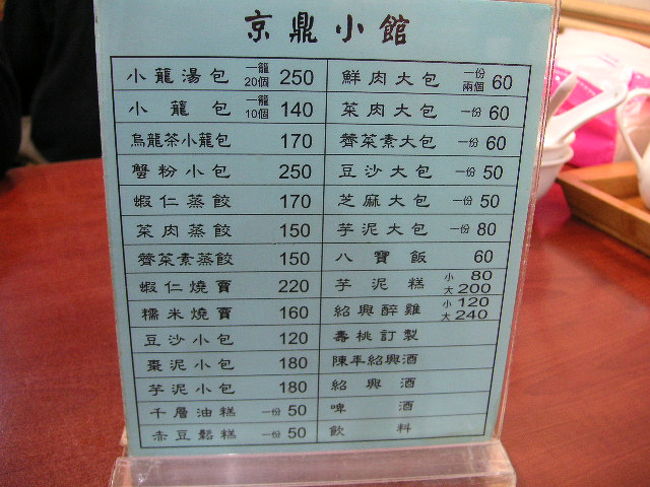 京鼎小館
小龍湯包 一籠20個 250
小籠包 一籠10個 140
烏龍茶小籠包 170
蟹粉小包 250
蝦仁蒸餃 170
菜肉蒸餃 150
薺菜素蒸餃 150
蝦仁燒賣 220
糯米燒賣 160
豆沙小包 120
棗泥小包 180
芋泥小包 180
千層油糕 一份 50
赤豆鬆糕 一份 50
鮮肉大包 一份兩個 60
菜肉大包 一份 60
薺菜素大包 一份 60
豆沙大包 一份 50
芝麻大包 一份 50
芋泥大包 一份 80
八寶飯 60
芋泥糕 小 80 大 200
紹興醉雞 小 120 大 240
壽桃訂製
陳年紹興酒
紹興酒
啤酒
飲料